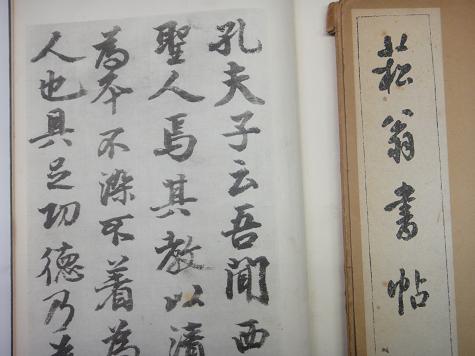 菘翁書帖
孔夫子云吾聞西
聖人焉其教以清
為本不染不着為
人也具足功德乃